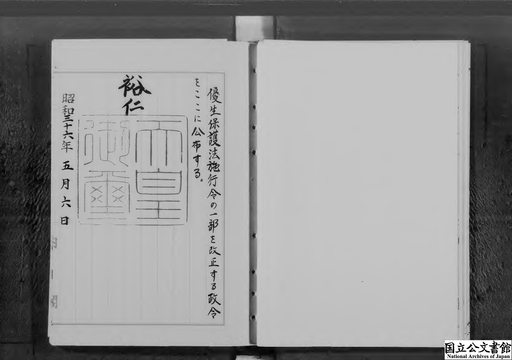 優生保護法施行令の一部を改正する政令
をここに公布する。
裕仁
天皇
御璽
昭和三十六年五月六日
国立公文書館
National Archives of Japan